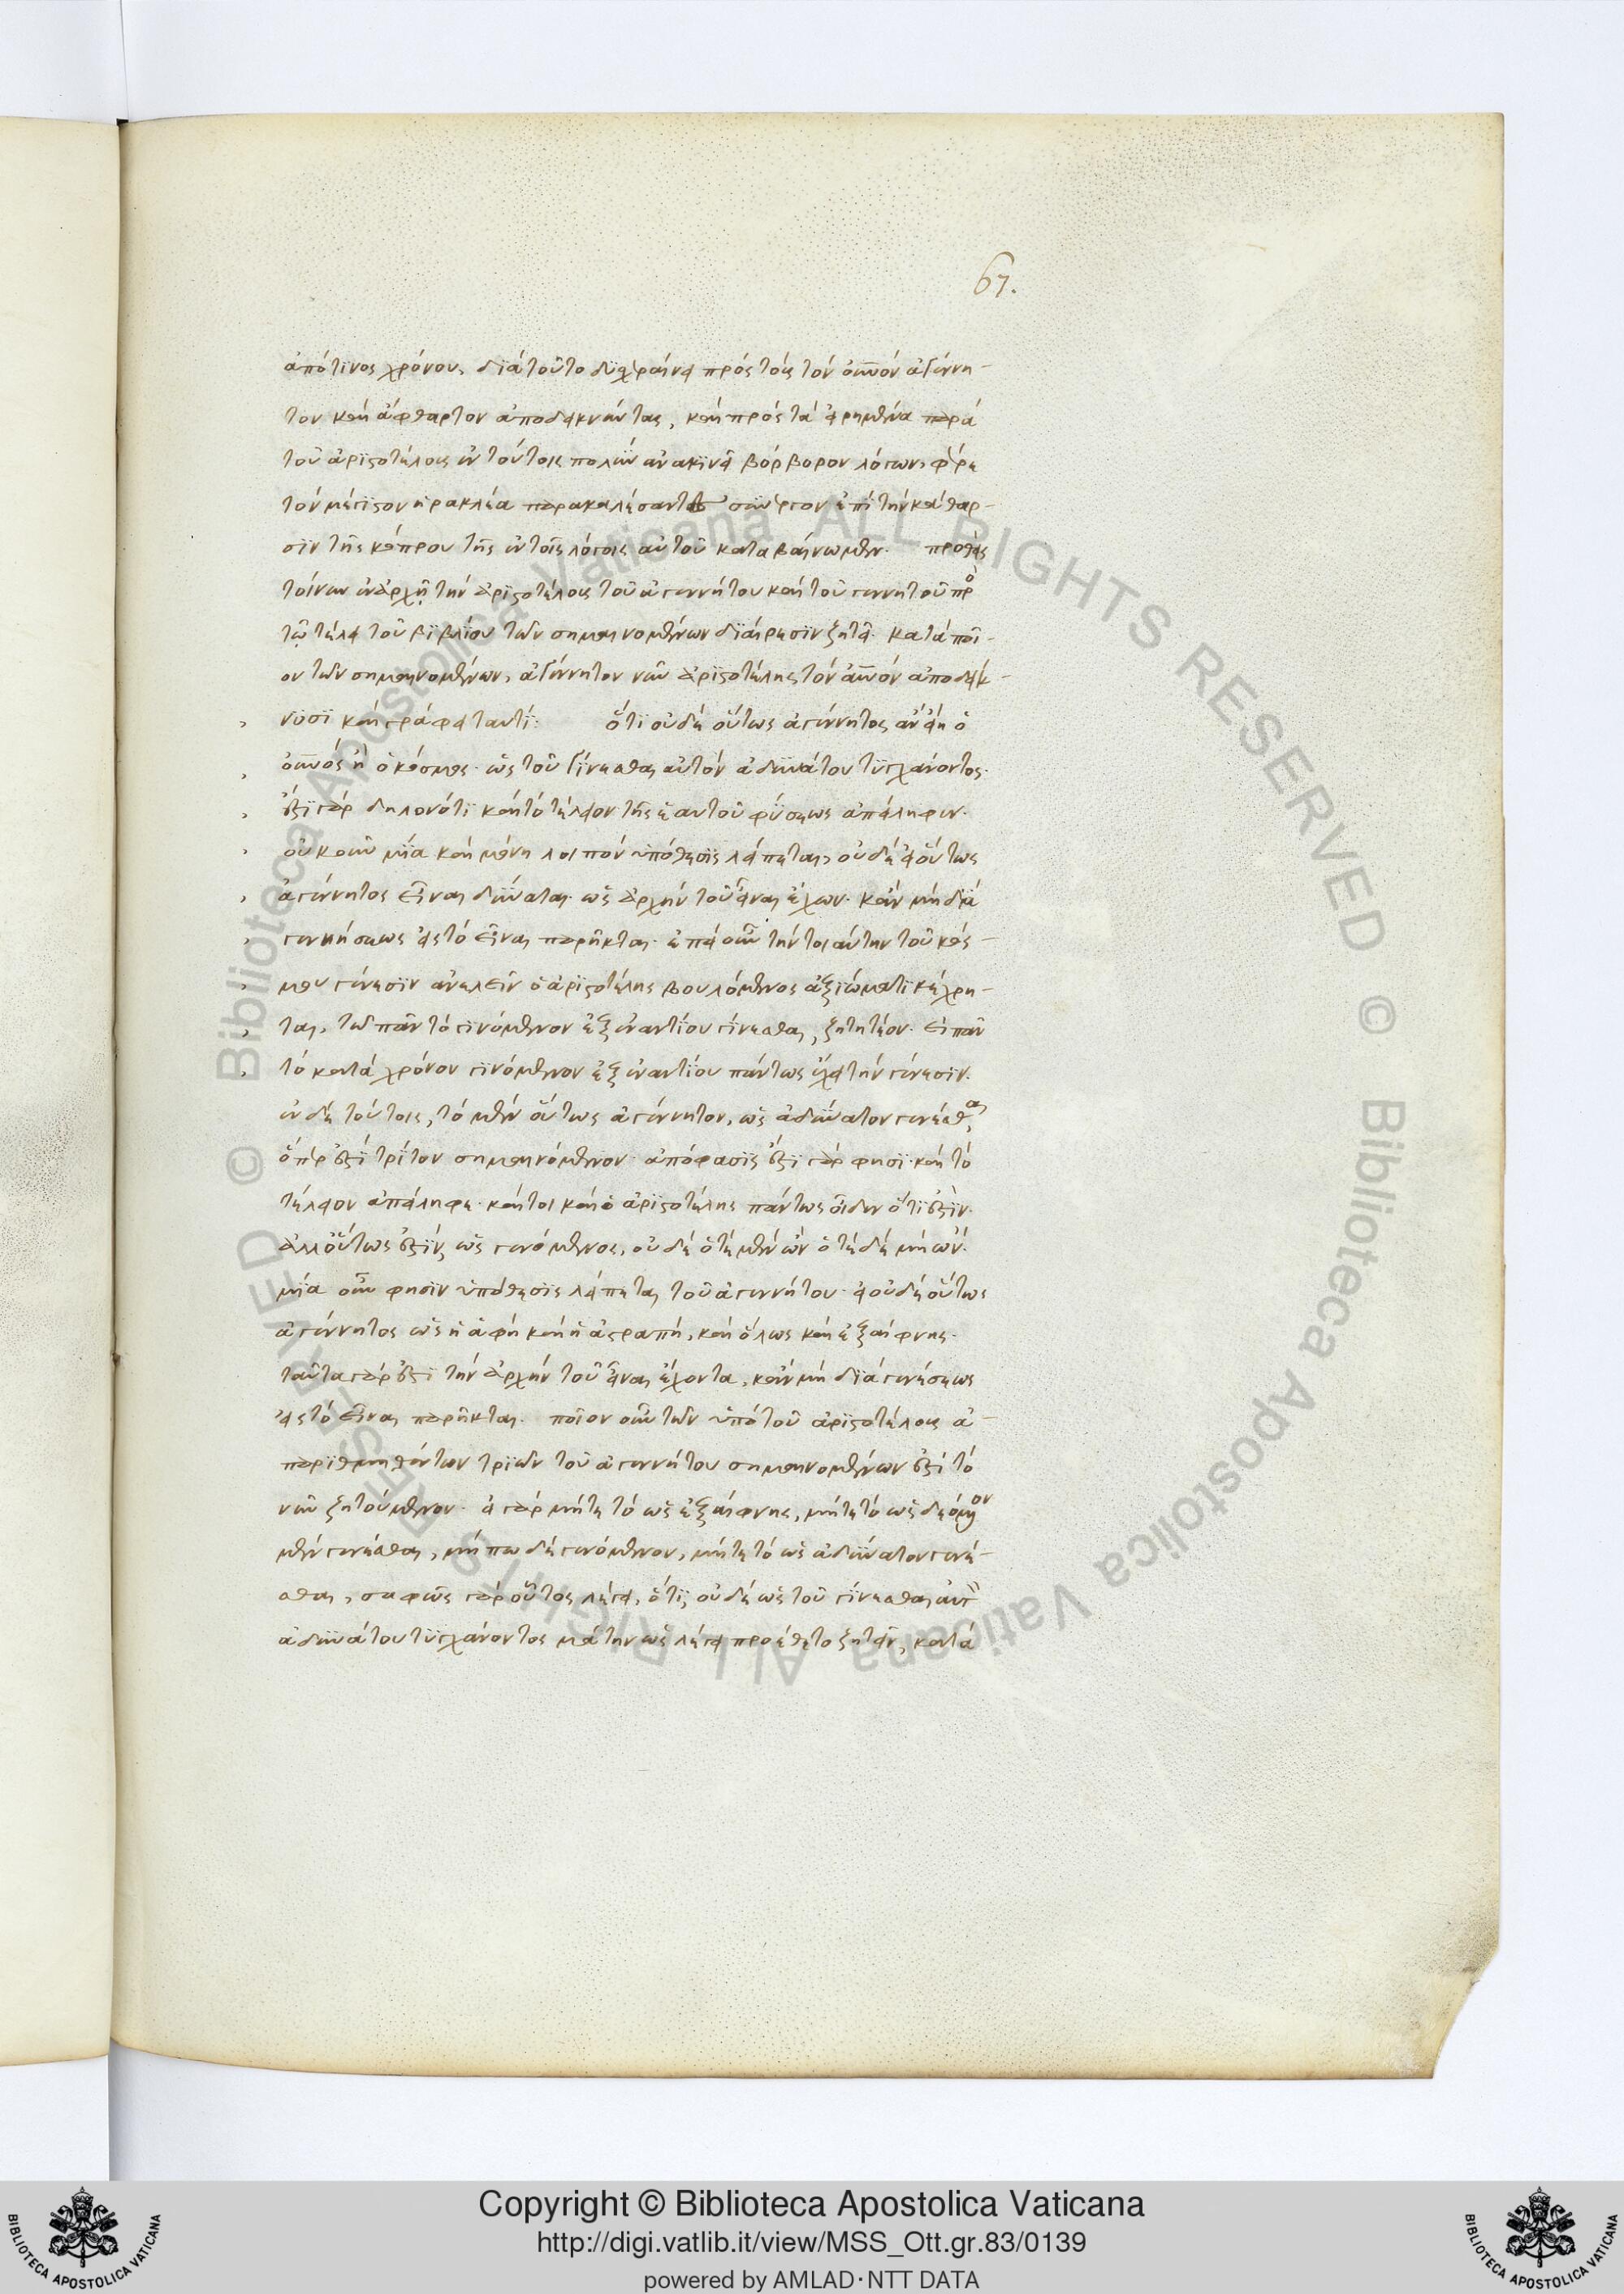 67.
ἀπό τινος χρόνου, διὰ τοῦτο δυσχεραίνει πρὸς τοὺς τὸν οὐνὸν ἀγέννη-
τον καὶ ἄφθαρτον ἀποδεικνύντας, καὶ πρὸς τὰ εἰρημένα παρὰ
τοῦ ἀριστοτέλους ἐν τούτοις πολὺν ἀνακινεῖ βόρβορον λόγων, φέρε
τὸν μέγιστον ἡρακλέα παρακαλέσαντες συνεργον ἐπὶ τὴν κάθαρ-
σιν τῆς κόπρου τῆς ἐν τοῖς λόγοις αὐτοῦ καταβαίνωμεν. προθεὶς
τοίνυν ἐν ἀρχῇ τὴν ἀριστοτέλους τοῦ ἀγεννήτου καὶ τοῦ γεννητοῦ πρὸ
τῷ τέλει τοῦ βιβλίου τῶν σημαινομένων διαίρεσιν ζητεῖ. κατὰ ποῖ-
ον τῶν σημαινομένων, ἀγέννητον νῦν ἀριστοτέλης τὸν οὐνὸν ἀποδείκ-
νυσι καὶ γράφει ταυτί: ὅτι οὐδὲ οὕτως ἀγέννητος ἂν εἴη ὁ
οὐνὸς ἢ ὁ κόσμος. ὡς τοῦ γίνεσθαι αὐτὸν ἀδυνάτου τυγχάνοντος.
ἔστι γὰρ δηλονότι καὶ τὸ τέλειον τῆς ἑαυτοῦ φύσεως ἀπείληφεν.
οὐκοῦν μία καὶ μόνη λοιπὸν ὑπόθεσις λείπεται, οὐδ' εἰ οὕτως
ἀγέννητος εἶναι δύναται. ὡς ἀρχὴν τοῦ εἶναι ἔχων. κἂν μὴ διὰ
γεννήσεως εἰς τὸ εἶναι παρῆκται. ἐπεὶ οὖν τὴν τοιαύτην τοῦ κόσ-
μου γένεσιν ἀνελεῖν ὁ ἀριστοτέλης βουλόμενος ἀξιώματι κέχρη-
ται, τῷ πᾶν τὸ γινόμενον ἐξ ἐναντίου γίνεσθαι, ζητητέον. εἰ πᾶν
τὸ κατὰ χρόνον γινόμενον ἐξ ἐναντίου πάντως ἔχει τὴν γένεσιν.
ἐν δὲ τούτοις, τὸ μὲν οὕτως ἀγέννητον, ὡς ἀδύνατον γενέσθαι,
ὅπερ ἐστὶ τρίτον σημαινόμενον. ἀπόφασις ἔστι γὰρ φησι καὶ τὸ
τέλειον ἀπείληφε. καίτοι καὶ ὁ ἀριστοτέλης πάντως οἶδεν ὅτι ἐστὶν.
ἀλλ' οὕτως ἐστὶν, ὡς γενόμενος, οὐδὲ ὁτὲ μὲν ὢν ὁτὲ δὲ μὴ ὢν.
μία οὖν φησὶν ὑπόθεσις λείπεται τοῦ ἀγεννήτου. εἰ οὐδὲ οὕτως
ἀγέννητος ὡς ἡ ἁφὴ καὶ ἡ ἀστραπή, καὶ ὅλως καὶ ἐξαίφνης.
ταῦτα γὰρ ἐστὶ τὴν ἀρχὴν τοῦ εἶναι ἔχοντα, κἂν μὴ διὰ γενέσεως
εἰς τὸ εἶναι παρῆκται. ποῖον οὖν τῶν ὑπὸ τοῦ ἀριστοτέλους ἀ-
παριθμηθέντων τριῶν τοῦ ἀγεννήτου σημαινομένων ἐστὶ τὸ
νῦν ζητούμενον. εἰ γὰρ μήτε τὸ ὡς ἐξαίφνης, μήτε τὸ ὡς δεόμενον
μὲν γενέσθαι, μήπω δὲ γενόμενον, μήτε τὸ ὡς ἀδύνατον γενέ-
σθαι, σαφῶς γὰρ οὗτος λέγει, ὅτι, οὐδὲ ὡς τοῦ γίνεσθαι αὐτὸν
ἀδυνάτου τυγχάνοντος μάτην ὡς λέγει προέθετο ζητεῖν, κατὰ
Copyright © Biblioteca Apostolica Vaticana
http://digi.vatlib.it/view/MSS_Ott.gr.83/0139
powered by AMLAD·NTT DATA